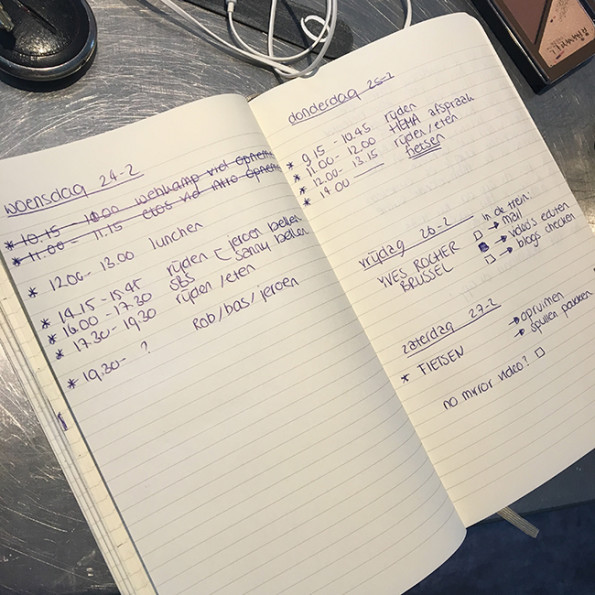 woensdag 24-2
* 10.15 - 11.00 webkamp vid opnemen
* 11.00 - 11.15 etos vid intro opnemen
* 12.00 - 13.00 lunchen
* 14.15 - 15.45 rijden → jeroen bellen
* 16.00 - 17.30 SBS sanny bellen
* 17.30 - 19.30 rijden / eten
* 19.30 - ? Rob/bas/jeroen
donderdag 25-2
* 9.15 - 10.45 rijden
* 11.00 - 12.00 HEMA afspraak
* 12.00 - 13.15 rijden/eten
* 14.00 fietsen
vrijdag 26-2
YVES ROCHER
BRUSSEL
in de trein:
□ → mail
→ video's editen
□ → blogs checken
zaterdag 27-2
* FIETSEN
→ opruimen
→ spullen pakken
no mirror video? □